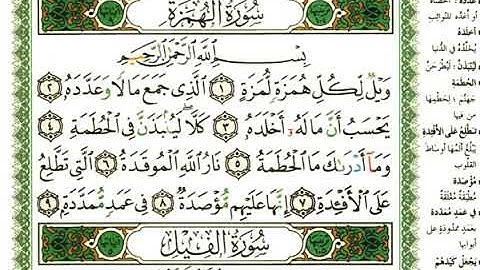 سُورَةُ الْهُمَزَةِ
بِسْمِ اللَّهِ الرَّحْمَٰنِ الرَّحِيمِ
وَيْلٌ لِّكُلِّ هُمَزَةٍ لُّمَزَةٍ ١ الَّذِي جَمَعَ مَالًا وَعَدَّدَهُ ٢
يَحْسَبُ أَنَّ مَالَهُ أَخْلَدَهُ ٣ كَلَّا لَيُنبَذَنَّ فِي الْحُطَمَةِ ٤
وَمَا أَدْرَىٰكَ مَا الْحُطَمَةُ ٥ نَارُ اللَّهِ الْمُوقَدَةُ ٦ الَّتِي تَطَّلِعُ
عَلَى الْأَفْئِدَةِ ٧ إِنَّهَا عَلَيْهِم مُّؤْصَدَةٌ ٨ فِي عَمَدٍ مُّمَدَّدَةٍ ٩
سُورَةُ الْفِيلِ
عَدَّدَهُ: أحصاه
أو أعدّه للنوائب
أَخْلَدَهُ
يخلّده في الدنيا
لَيُنبَذَنَّ: ليطرحنّ
الْحُطَمَةِ
جهنّم؛ لحطمها
من فيها
تَطَّلِعُ عَلَى الْأَفْئِدَةِ
يبلغ ألمها أوساط
القلوب
مُؤْصَدَةٌ
مطبقة مغلقة
فِي عَمَدٍ مُمَدَّدَةٍ
بعمد ممدودة على
أبوابها
يَجْعَلْ كَيْدَهُمْ